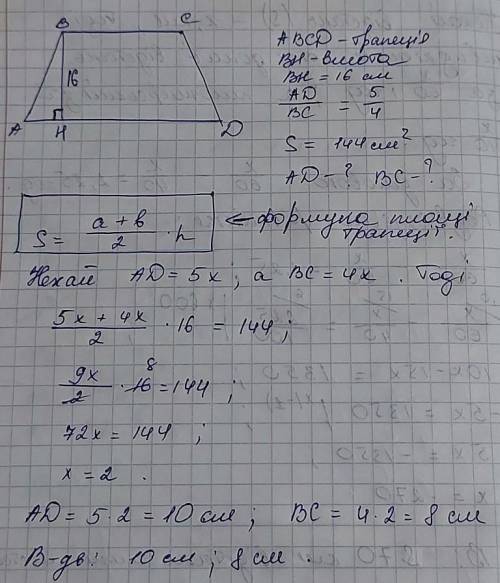 B C
16
A H D
ABCD - трапеція
BH - висота
BH = 16 см
AD/BC = 5/4
S = 144 см²
AD - ? BC - ?
S = (a + b)/2 · h ← формула площі
трапеції.
Нехай AD = 5x ; а BC = 4x . Тоді
(5x + 4x)/2 · 16 = 144 ;
9x/2 · 16 8 = 144 ;
72x = 144 ;
x = 2 .
AD = 5 · 2 = 10 см ; BC = 4 · 2 = 8 см
В-дь: 10 см ; 8 см .